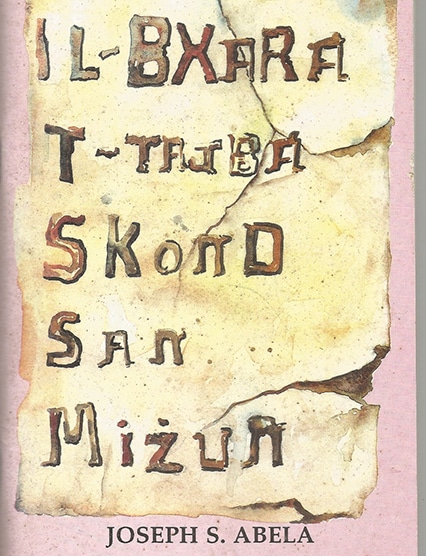 IL-BXARA
T-TAJBA
SKOND
SAN
MIŻUN
JOSEPH S. ABELA